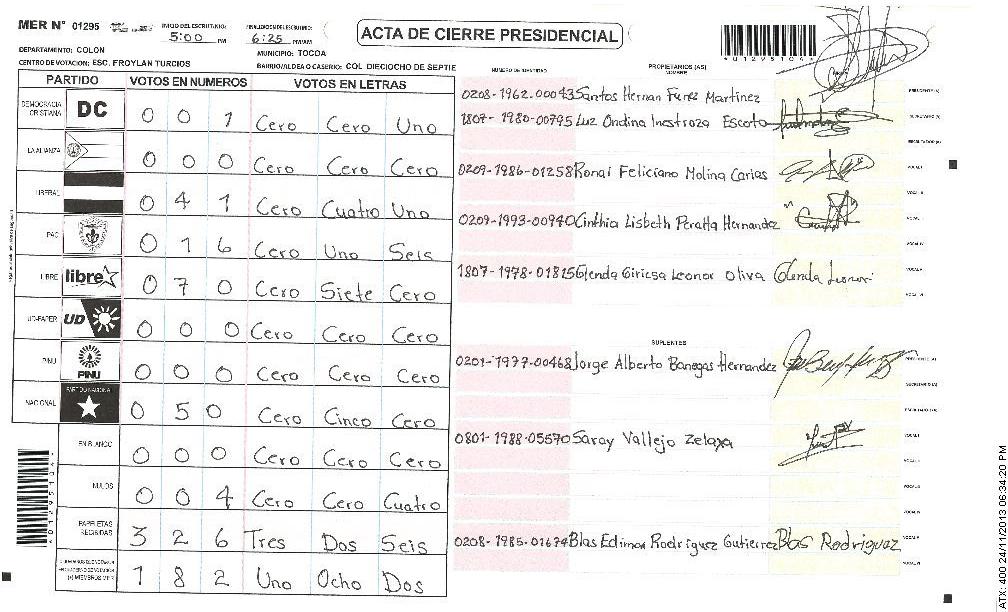 MER Nº 01295
INICIO DEL ESCRUTINIO: 5:00 PM
FINALIZACION DEL ESCRUTINIO: 6:25 PM/AM
ACTA DE CIERRE PRESIDENCIAL
*01295104*
DEPARTAMENTO: COLON
MUNICIPIO: TOCOA
CENTRO DE VOTACION: ESC. FROYLAN TURCIOS
BARRIO/ALDEA O CASERIO: COL DIECIOCHO DE SEPTIE
PARTIDO VOTOS EN NUMEROS VOTOS EN LETRAS
NUMERO DE IDENTIDAD PROPIETARIOS (AS) NOMBRE
DEMOCRACIA CRISTIANA DC 0 0 1 Cero Cero Uno
LA ALIANZA 0 0 0 Cero Cero Cero
LIBERAL 0 4 1 Cero Cuatro Uno
PAC 0 1 6 Cero Uno Seis
LIBRE libre 0 7 0 Cero Siete Cero
UD-FAPER UD 0 0 0 Cero Cero Cero
PINU PINU 0 0 0 Cero Cero Cero
NACIONAL PARTIDO NACIONAL 0 5 0 Cero Cinco Cero
EN BLANCO 0 0 0 Cero Cero Cero
NULOS 0 0 4 Cero Cero Cuatro
PAPELETAS RECIBIDAS 3 2 6 Tres Dos Seis
1 8 2 Uno Ocho Dos
0208-1962-00043 Santos Hernan Funez Martinez PRESIDENTE (A)
1807-1980-00795 Luz Ondina Inestroza Escoto SECRETARIO (A)
ESCRUTADOR (A)
0209-1986-01258 Ronai Feliciano Molina Carias VOCAL I
VOCAL II
0209-1993-00940 Cinthia Lisbeth Peralta Hernandez
VOCAL IV
1807-1978-01815 Glenda Ciricsa Leonor Oliva Glenda Leonor VOCAL V
VOCAL VI
SUPLENTES
0201-1977-00468 Jorge Alberto Banegas Hernandez PRESIDENTE (A)
SECRETARIO (A)
0801-1988-05570 Saray Vallejo Zelaya VOCAL I
0208-1985-01674 Blas Edimon Rodriguez Gutierrez Blas Rodriguez VOCAL V
VOCAL VI
*01295104*
ATX: 400 24/11/2013 06:34:20 PM